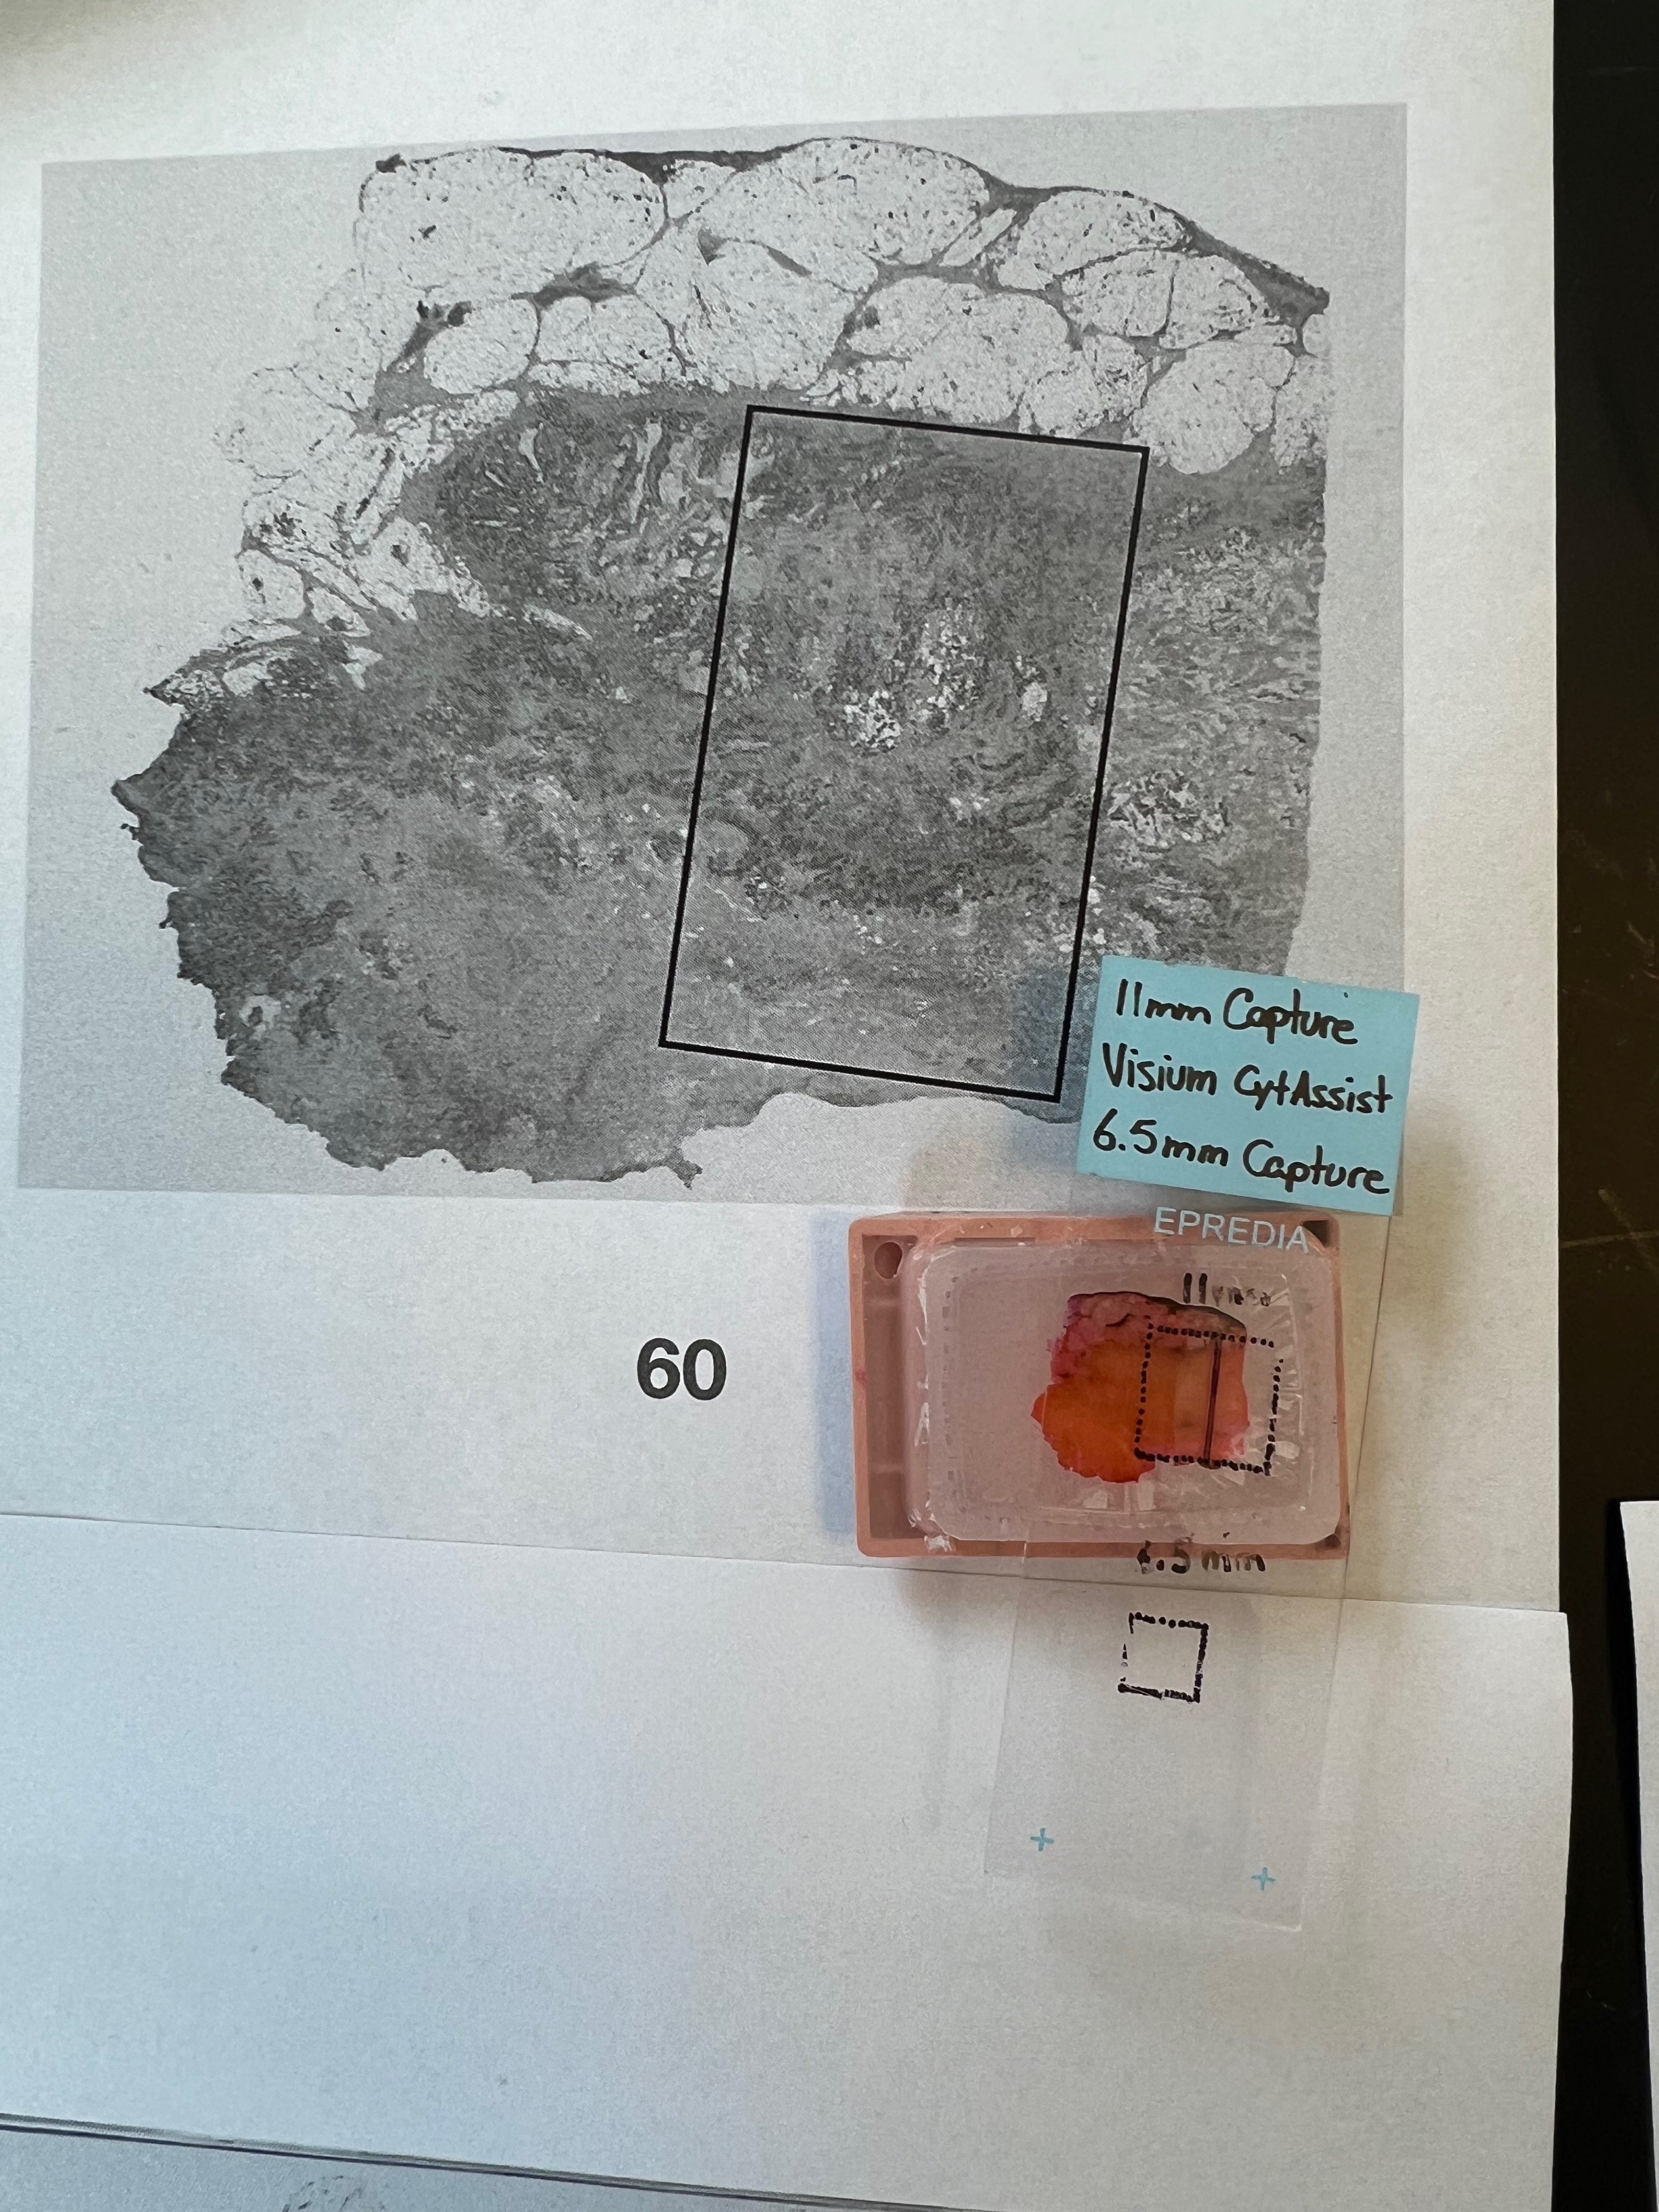 11mm Capture
Visium CytAssist
6.5mm Capture
EPREDIA
11mm
60
6.5mm